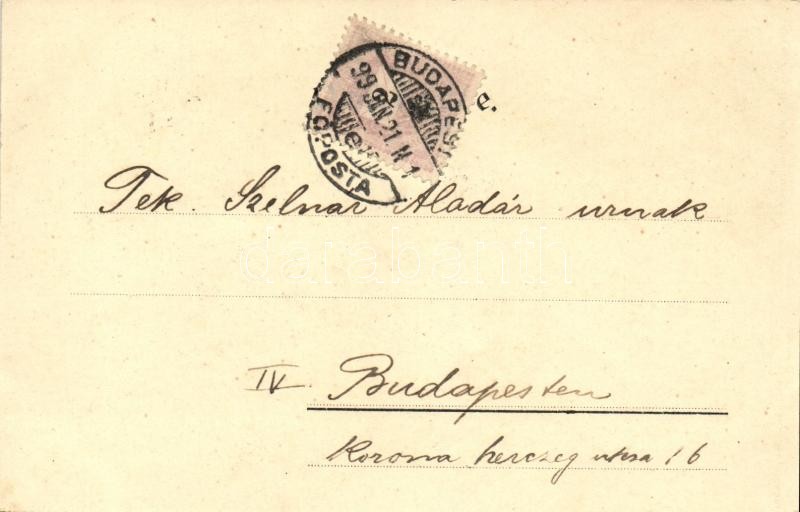 BUDAPEST
99 JAN. 21
FŐPOSTA
e.
Tek. Szelnar Aladár urnak
darabanth
IV. Budapesten
Korona herczeg utcza 16